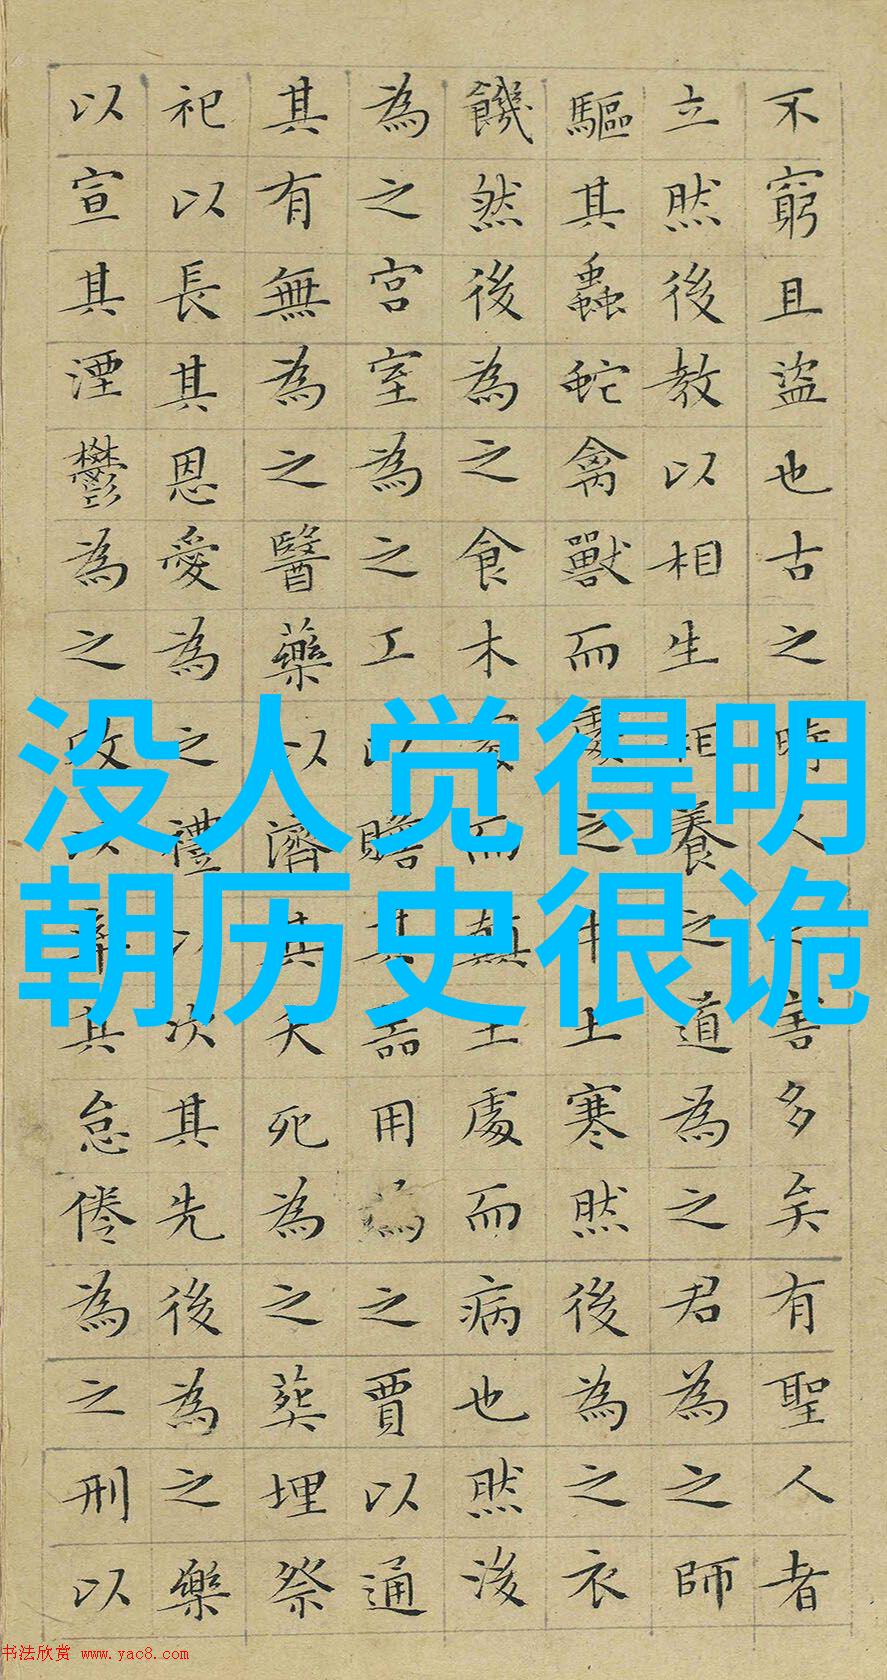 没人觉得明
朝历史很诡
不窮且盜也古之時人之害多矣有聖人者
立然後教以相生相養之道為之君為之師
驅其蟲蛇禽獸而處之中土寒然後為之衣
饑然後為之食木處而顛土處而病也然後
為之宮室為之工以贍其器用為之賈以通
其有無為之醫藥以濟其夭死為之葬埋祭
祀以長其恩愛為之禮以次其先後為之樂
以宣其湮鬱為之政以率其怠倦為之刑以
书法欣赏 www.yac8.com